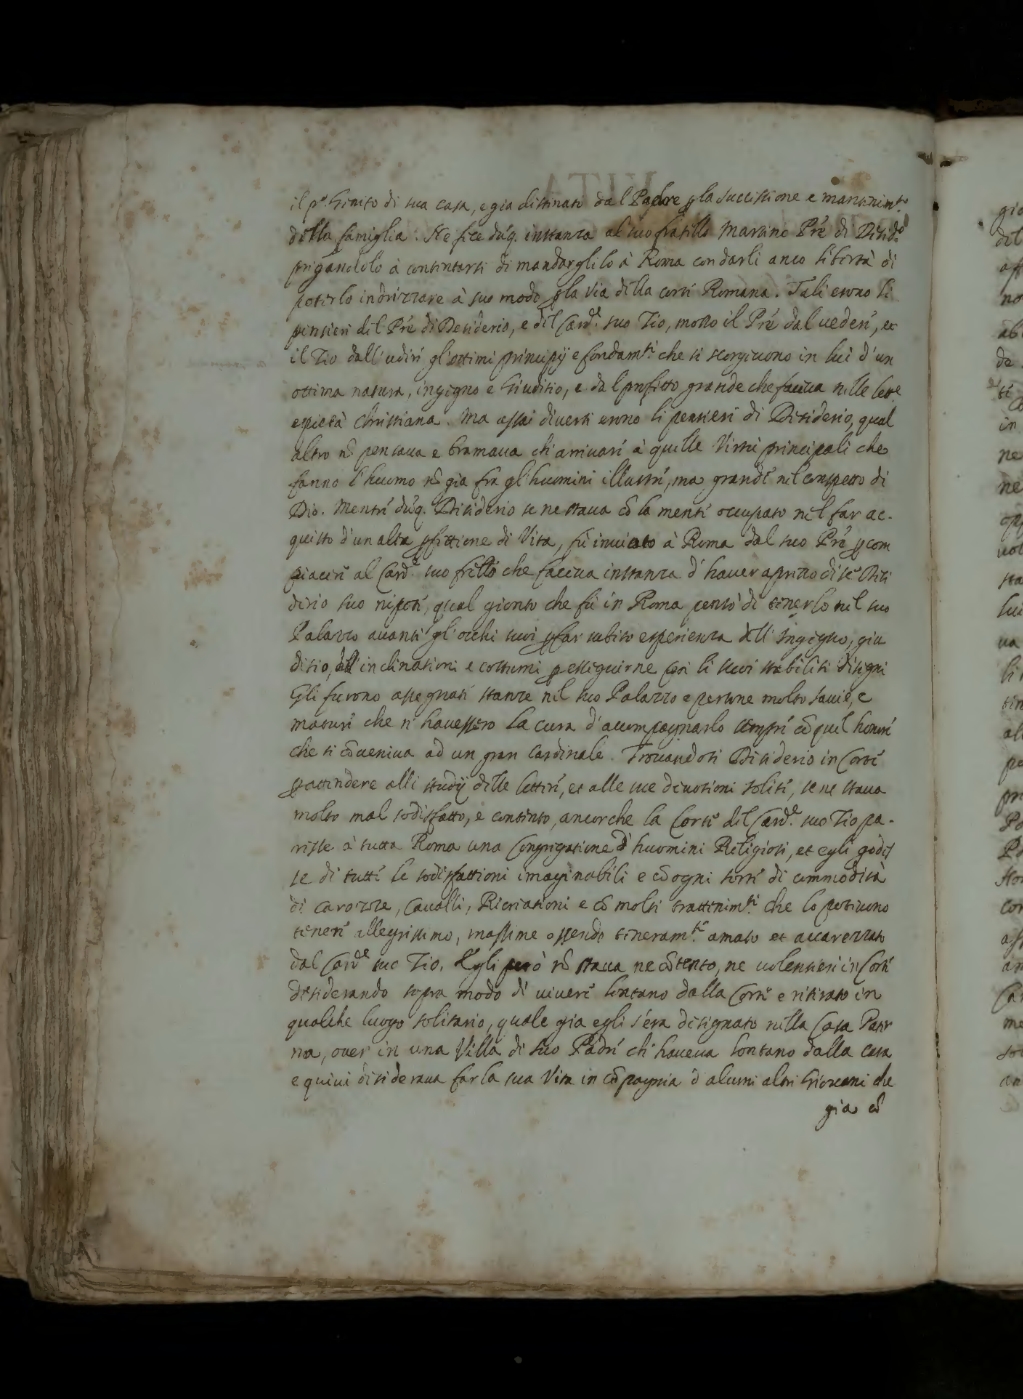 il p.º genito di sua casa, e gia destinato dal Padre p la successione e mantenim.to
della famiglia. Ne fece dũq. instanza al suo fratello Martino Prẽ di Desid.º
pregandolo à contentarsi di mandarglilo à Roma con darli anco libertà di
poterlo indrizzare à suo modo p la via della corte Romana. Tali erono li
pensieri del Prẽ di Desiderio, e del Card.e suo Tio, mosso il Prẽ dal vedere, et
il Tio dall'udire gl'ottimi principij e fondam.ti che si scorgevono in lui d'un
ottima natura, ingegno e Giuditio, e dal profitto grande che faceva nelle lr̃e
e pietà christiana. Ma assai diversi erono li pensieri di Desiderio, qual
altro nõ pensava e bramava ch'arrivare à quelle Virtù principali che
fanno l'huomo nõ gia fra gl'huomini illustri, ma grande nel conspetto di
Dio. Mentre dũq. Desiderio se ne stava cõ la mente occupato nel far ac-
quisto d'un alta pfettione di Vita, fù inviato à Roma dal suo Prẽ p com
piacere al Card.e suo frello che faceva instanza d'haver apresso di se Desi
derio suo nipote, qual gionto che fù in Roma pensò di tenerlo nel suo
Palazzo avanti gl'occhi suoi p far subito esperienza dell'Ingegno, giu
ditio, inclinationi e costumi p esseguirne poi li suoi stabiliti disegni
Gli furono assegnati stanze nel suo Palazzo e persone molto savie, e
mature che n'havessero la cura d'accompagnarlo sempre cõ quel honore
che si cõveniva ad un gran Cardinale. Trovandosi Desiderio in Corte
p attindere alli studij delle lettere, et alle sue divotioni solite, se ne stava
molto mal sodisfatto, e contento, ancorche la Corte del Card.e suo Tio pa-
risse à tutta Roma una Congregatione d'huomini Religiosi, et egli godes
se di tutte le sodisfattioni imaginabili e cõ ogni sorte di commodità
di carozze, Cavalli, Ricreationi e cõ molti trattenim.ti che lo potevono
tenere allegrissimo, massime essendo teneram.te amato et accarezzato
dal Card.e suo Tio. Egli però nõ stava ne cõtento, ne volentieri in Corte
desiderando sopra modo di vivere lontano dalla Corte e ritirato in
qualche luogo solitario, quale gia egli s'era designato nella Casa Pater
na, over in una Villa di suo Padre ch'haveva lontano dalla casa
e quivi desiderava far la sua Vita in cõpagnia d'alcuni altri Giovani che
gia cõ